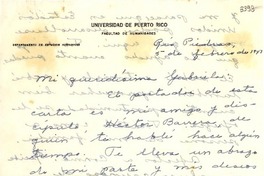 UNIVERSIDAD DE PUERTO RICO
FACULTAD DE HUMANIDADES
DEPARTAMENTO DE ESTUDIOS HISPÁNICOS
Río Piedras,
de febrero de 195
Mi queridísima Gabriela:
El portador de esta
carta es mi amigo y dis-
cípulo, Héctor Barrera, de
quien te hablé hace algún
tiempo. Te lleva un abrazo
de mi parte y mis deseos